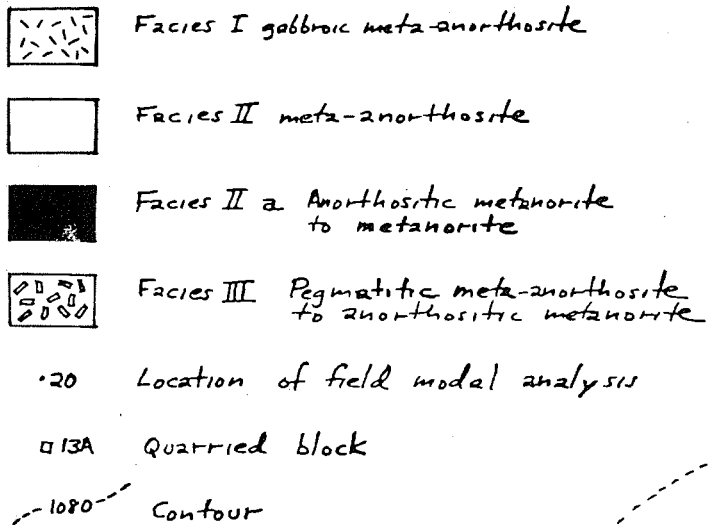 Facies I gabbroic meta-anorthosite
Facies II meta-anorthosite
Facies II a Anorthositic metanorite
to metanorite
Facies III Pegmatitic meta-anorthosite
to anorthositic metanorite
·20 Location of field modal analysis
□ 13A Quarried block
1080 Contour